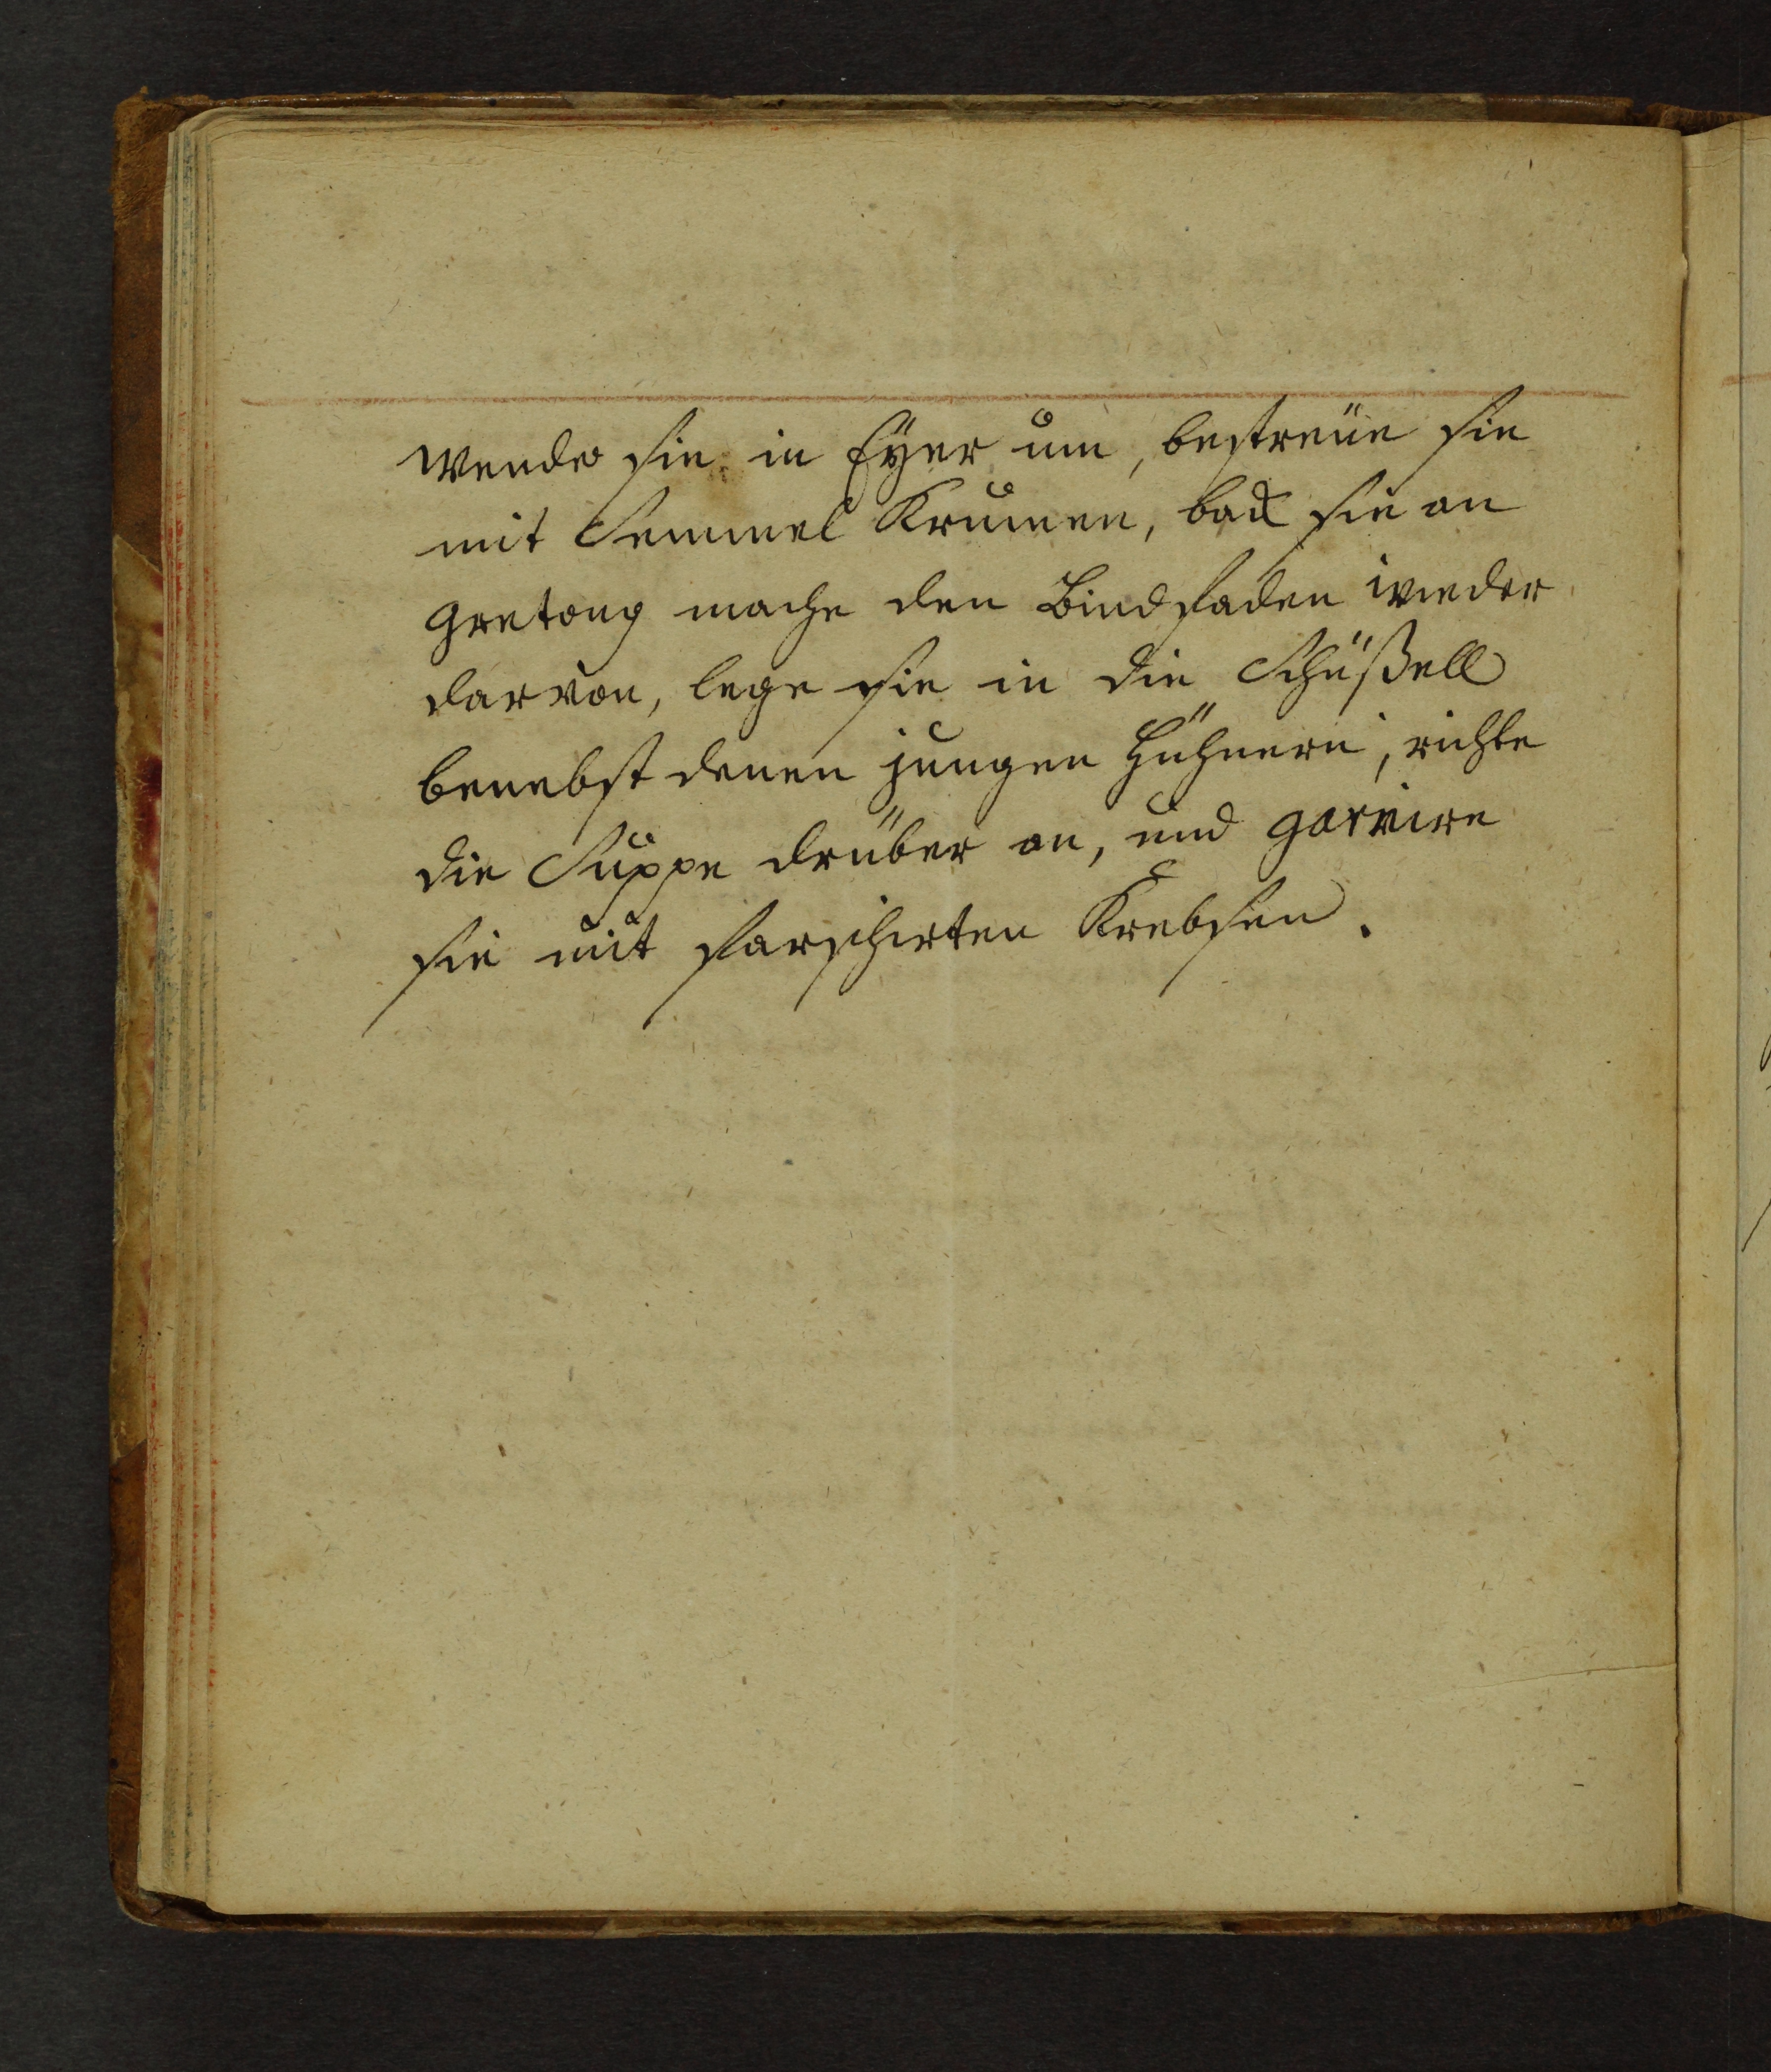 wende sie in Eÿer um, bestreüe sie
mit Semmel Krumen, back sie an
gretong mache den Bindfaden wieder
darvon, lege sie in die Schüßell
benebst denen jungen Hühnern, richte
die Suppe drüber an, und garnire
sie mit farschirten Krebsen.